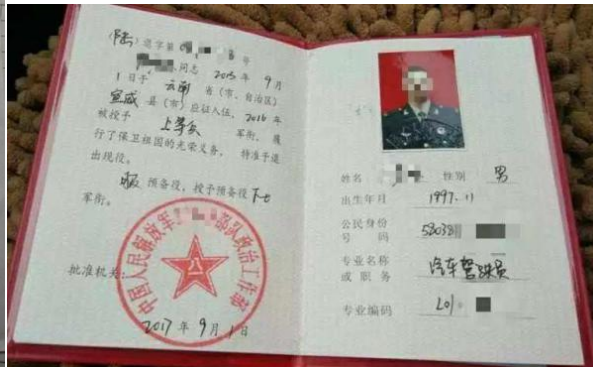 (陆)退字第0 8 号
同志 2015 年 9 月
1 日于 云南 省(市、自治区)
宣威 县(市)应征入伍, 2016 年
被授予 上等兵 军衔, 履
行了保卫祖国的光荣义务, 特准予退
出现役。
服 预备役, 授予预备役 下士
军衔。
批准机关:
中国人民解放军 部队政治工作部
八一
2017 年 9 月 1 日
姓名 性别 男
出生年月 1997.11
公民身份
号 码 53038
专业名称
或 职 务 汽车驾驶员
专业编码 L01